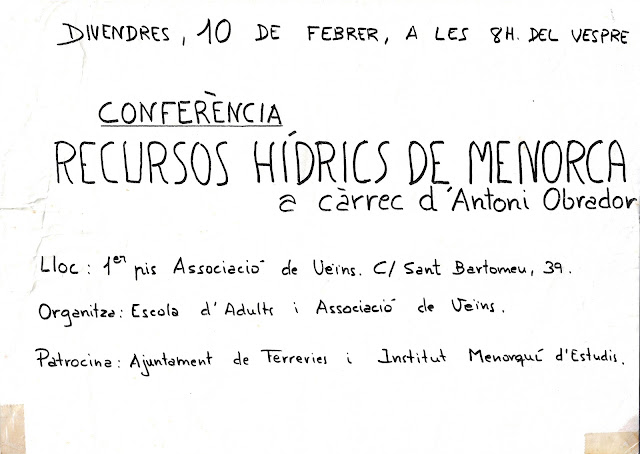 DIVENDRES, 10 DE FEBRER, A LES 8H. DEL VESPRE
CONFERÈNCIA
RECURSOS HÍDRICS DE MENORCA
a càrrec d'Antoni Obrador
Lloc: 1er pis Associació de Veïns. C/ Sant Bartomeu, 39.
Organitza: Escola d'Adults i Associació de Veïns.
Patrocina: Ajuntament de Ferreries i Institut Menorquí d'Estudis.